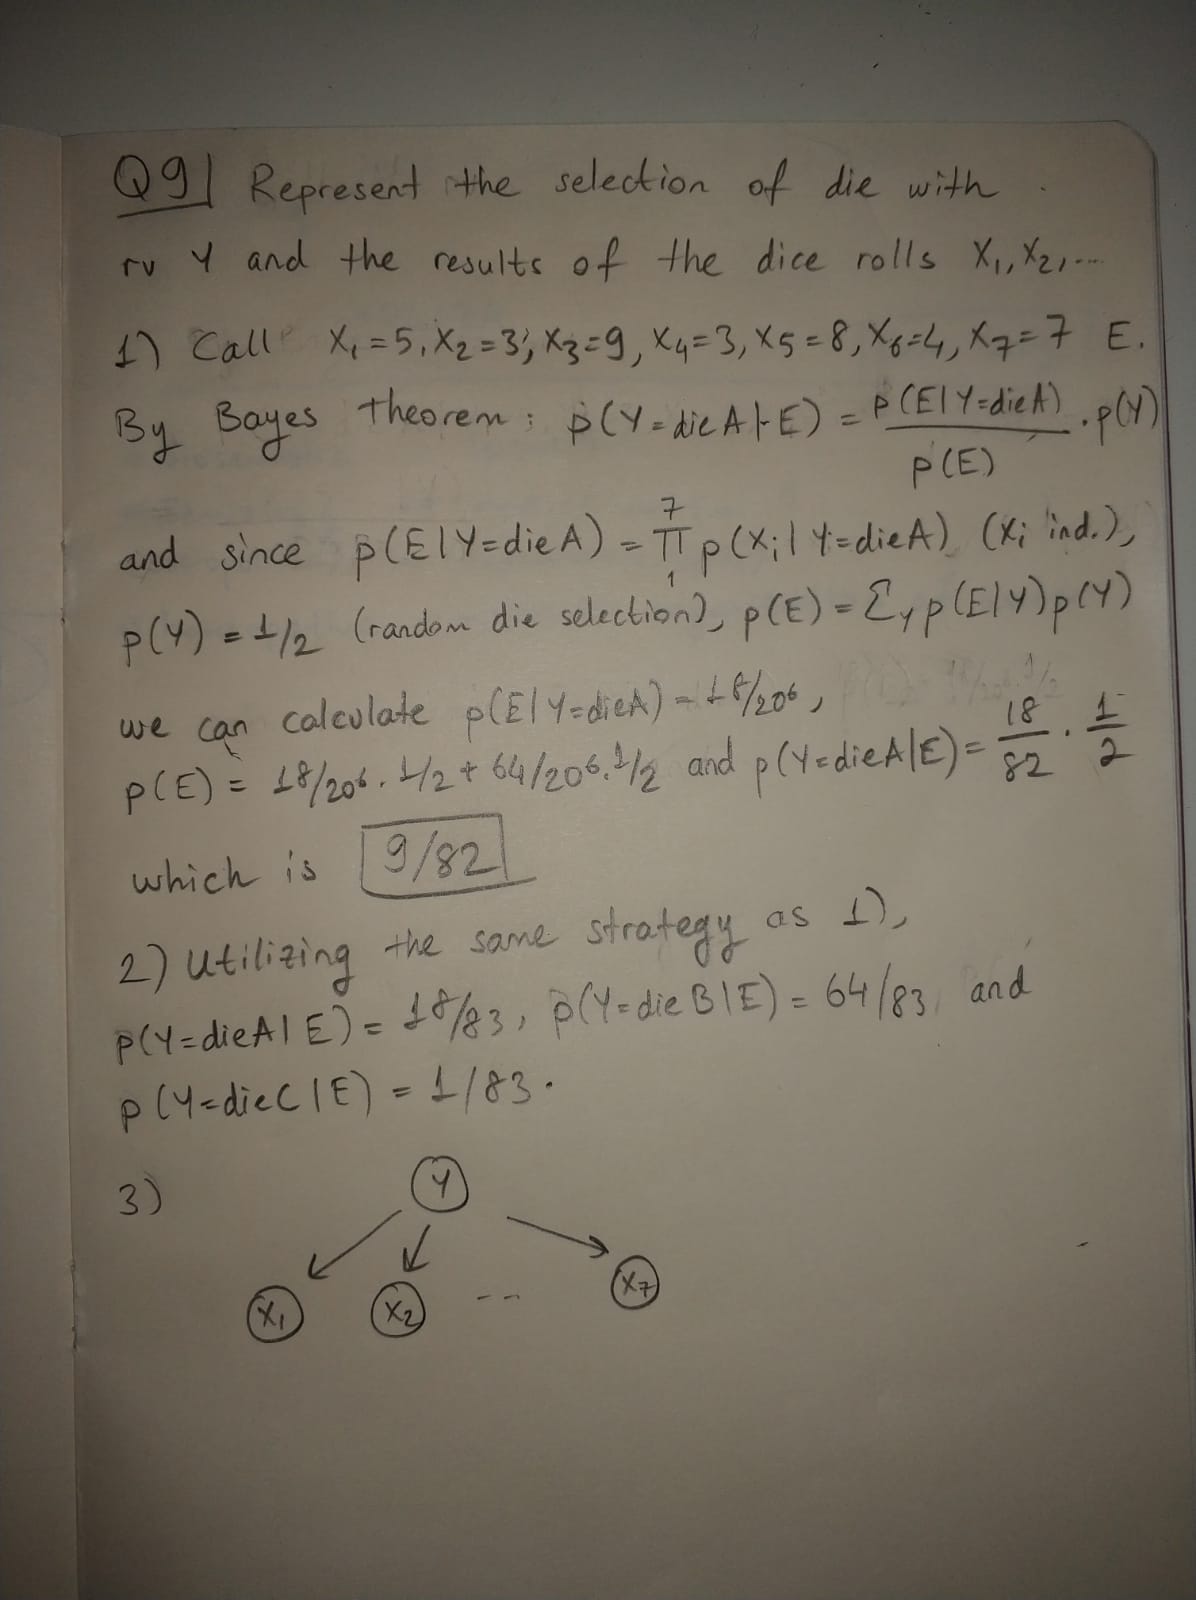 Q9| Represent the selection of die with
rv Y and the results of the dice rolls X₁, X₂, ...
1) Call X₁=5, X₂=3, X₃=9, X₄=3, X₅=8, X₆=4, X₇=7 E.
By Bayes theorem: p(Y=dieA|E) = p(E|Y=dieA)/p(E) · p(Y)
and since p(E|Y=dieA) = ∏₁⁷ p(Xᵢ|Y=dieA) (Xᵢ ind.),
p(Y) = 1/2 (random die selection), p(E) = Σ_Y p(E|Y)p(Y)
we can calculate p(E|Y=dieA) = 18/20⁶,
p(E) = 18/20⁶ . 1/2 + 64/20⁶ . 1/2 and p(Y=dieA|E) = 18/82 · 1/2
which is 9/82
2) Utilizing the same strategy as 1),
p(Y=dieA|E) = 18/83, p(Y=dieB|E) = 64/83, and
p(Y=dieC|E) = 1/83.
3)
Y
X₁ X₂ -- X₇